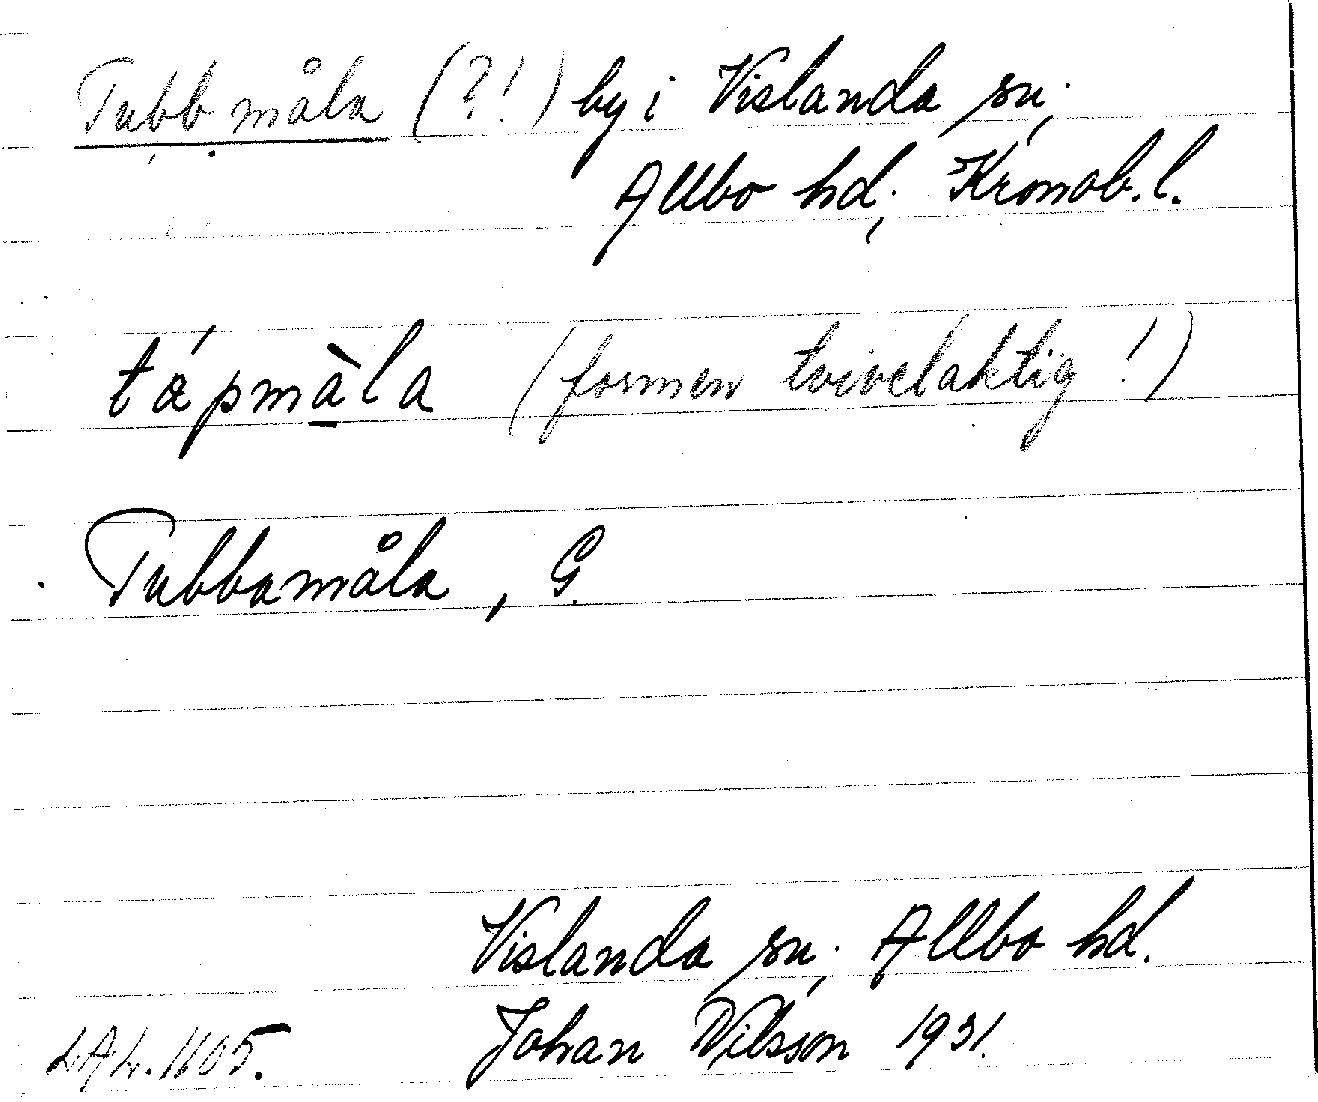 Tubbmåla (?!) by i Vislanda sn;
Allbo hd; Kronob. l.
tápmàla (formen tvivelaktig!)
Tubbamåla, G.
Vislanda sn; Allbo hd.
Johan Nilsson 1931.